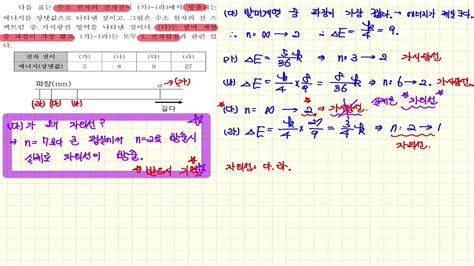 다음 표는 수소 원자의 전자전이 (가)~(라)에서 방출되는
에너지를 상댓값으로 나타낸 것이고, 그림은 수소 원자의 선 스
펙트럼 중 가시광선 영역을 나타낸 것이다. (다)는 발머 계열
중 파장이 가장 짧고, (가)~(라)는 모두 관련 있
다.
전자 전이 (가) (나) (다) (라)
에너지(상댓값) 5 8 9 27
파장(nm)
a (가)
(라) (다) (나)
길다
(다)가 왜 자외선?
⇒ n=7보다 큰 껍질에서 n=2로 방출시
실제로 자외선이 방출.
반드시 기억
(다) 발머계열 중 파장이 가장 짧다. → 에너지가 제일 크다.
∴ n=∞ → 2 ∴ ΔE = k/4 = 9.
(가) ΔE = 5k/36 ⇒ n: 3→2 가시광선
(나) ΔE = 8k/36 ⇒ n: 6→2. 가시광선.
(다) n=∞ → 2 가시광선 실제로 자외선
(라) ΔE = k/4 × 27/9 = 3/4 k ⇒ n: 2→1
자외선.
자외선: 다, 라.